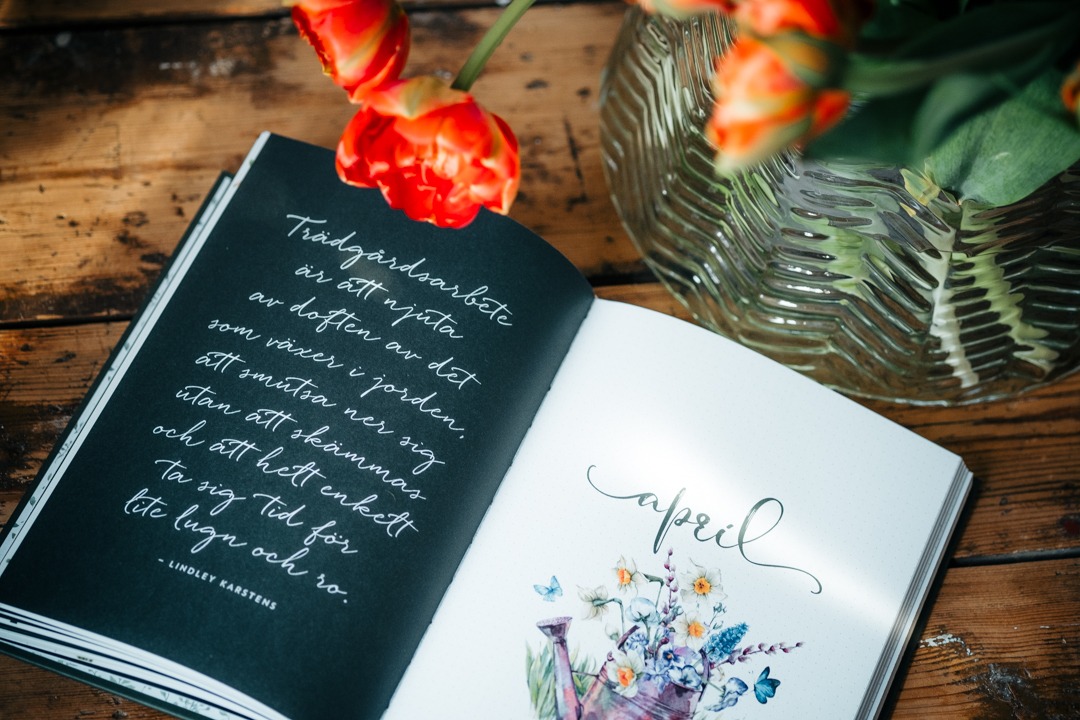 Trädgårdsarbete
är att njuta
av doften av det
som växer i jorden,
att smutsa ner sig
utan att skämmas
och att helt enkelt
ta sig tid för
lite lugn och ro.
- LINDLEY KARSTENS
april